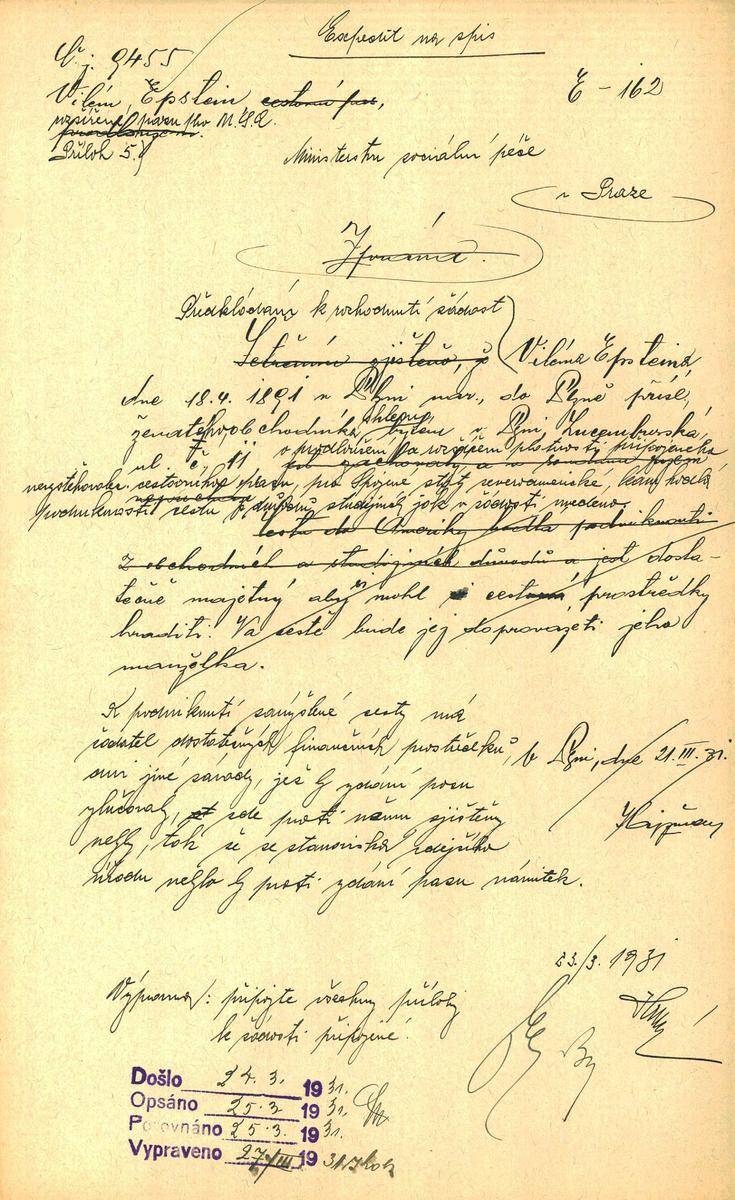 Expedit na spis
Č.j. 9455
E - 162
Vilém Epstein cestovní pas,
rozšíření pasu pro
prodloužení.
Příloh 5.
Ministerstvu sociální péče
v Praze
Předkládám k rozhodnutí žádost
Šetřením zjištěno, že Viléma Epsteina,
dne 18.4. 1891 v Plzni nar., do Plzně přísl.,
ženatého, obchodníka, bytem v Plzni, Lucemburská
ul. č. 11 o prodloužení a rozšíření platnosti připojeného
cestovního pasu, pro Spojené státy severoamerické, kam hodlá
podniknouti cestu z důvodů studijních jak v žádosti uvedeno.
cestu do Ameriky hodlá podniknouti
z obchodních a studijních důvodů a jest dosta-
tečně majetný aby si mohl cestovní prostředky
hraditi. Na cestě bude jej doprovázeti jeho
manželka.
K podniknutí zamýšlené cesty má
žadatel dostatečných finančních prostředků,
ani jiné závady, jež by vydání pasu
vylučovaly, zde proti němu zjištěny
nebyly, tak že se stanoviska zdejšího
úřadu nebylo by proti vydání pasu námitek.
V Plzni, dne 21.III.31.
23./3. 1931
Výpravna: připojte všechny přílohy
k žádosti připojené.
Došlo 24. 3. 1931.
Opsáno 25. 3. 1931.
Porovnáno 25. 3. 1931.
Vypraveno 27/III 1931